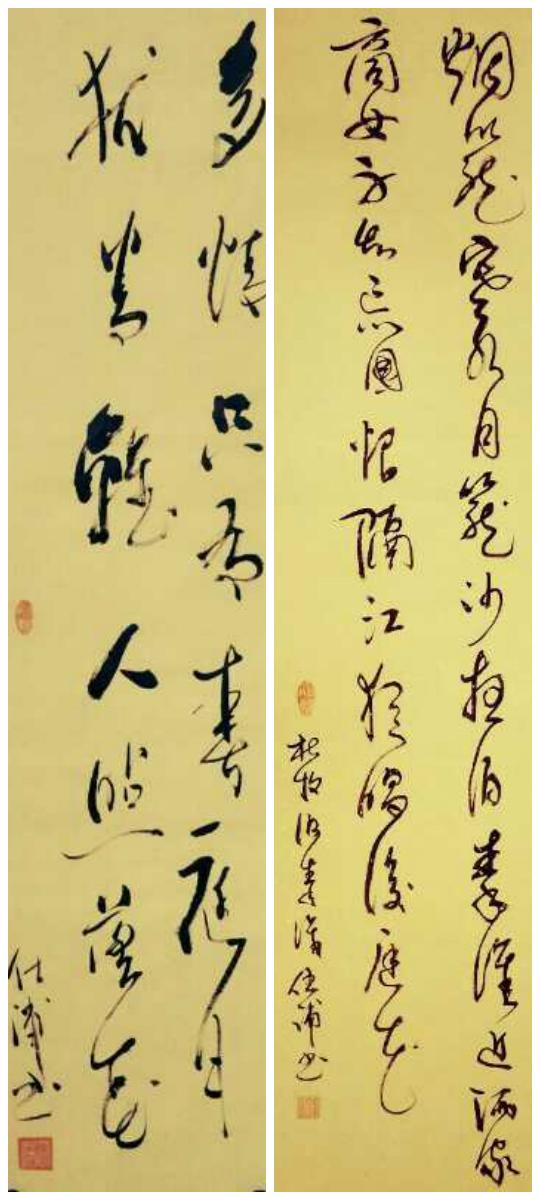 烟籠寒水月籠沙夜泊秦淮近酒家
商女不知亡國恨隔江猶唱後庭花
杜牧泊秦淮仕浦书
多情只有春庭月
猶為離人照落花
仕浦书